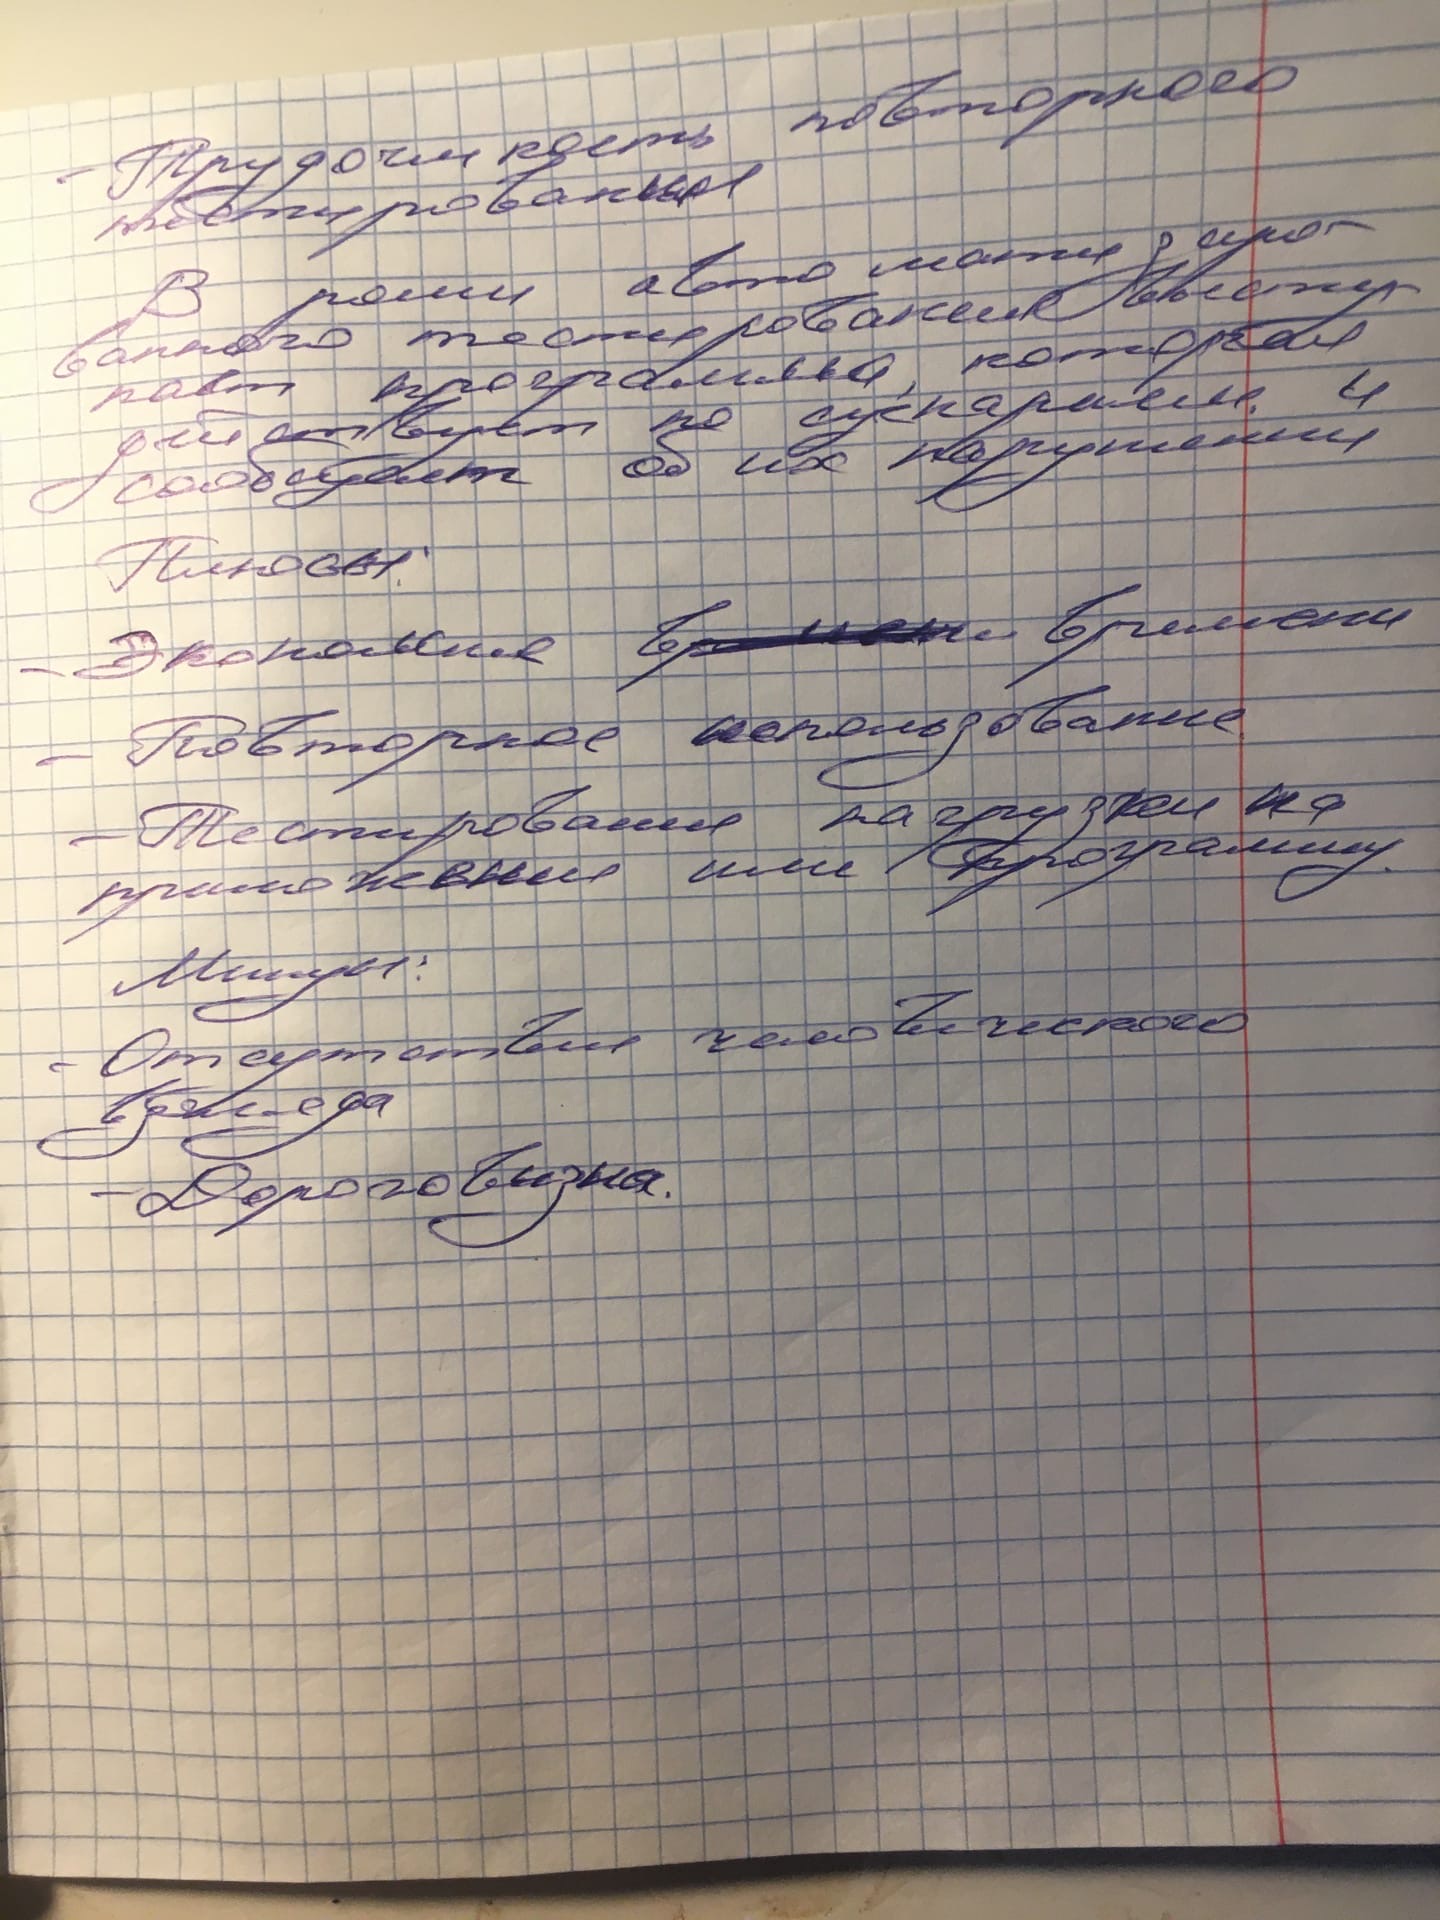 - Трудоемкость повторного
тестирования
В роли автоматизиро-
ванного тестирования высту-
пает программа, которая
действует по сценариям и
сообщает об их нарушении
Плюсы:
- Экономия времени
- Повторное использование
- Тестирование нагрузки на
приложение или программу.
Минусы:
- Отсутствие человеческого
взгляда
- Дороговизна.